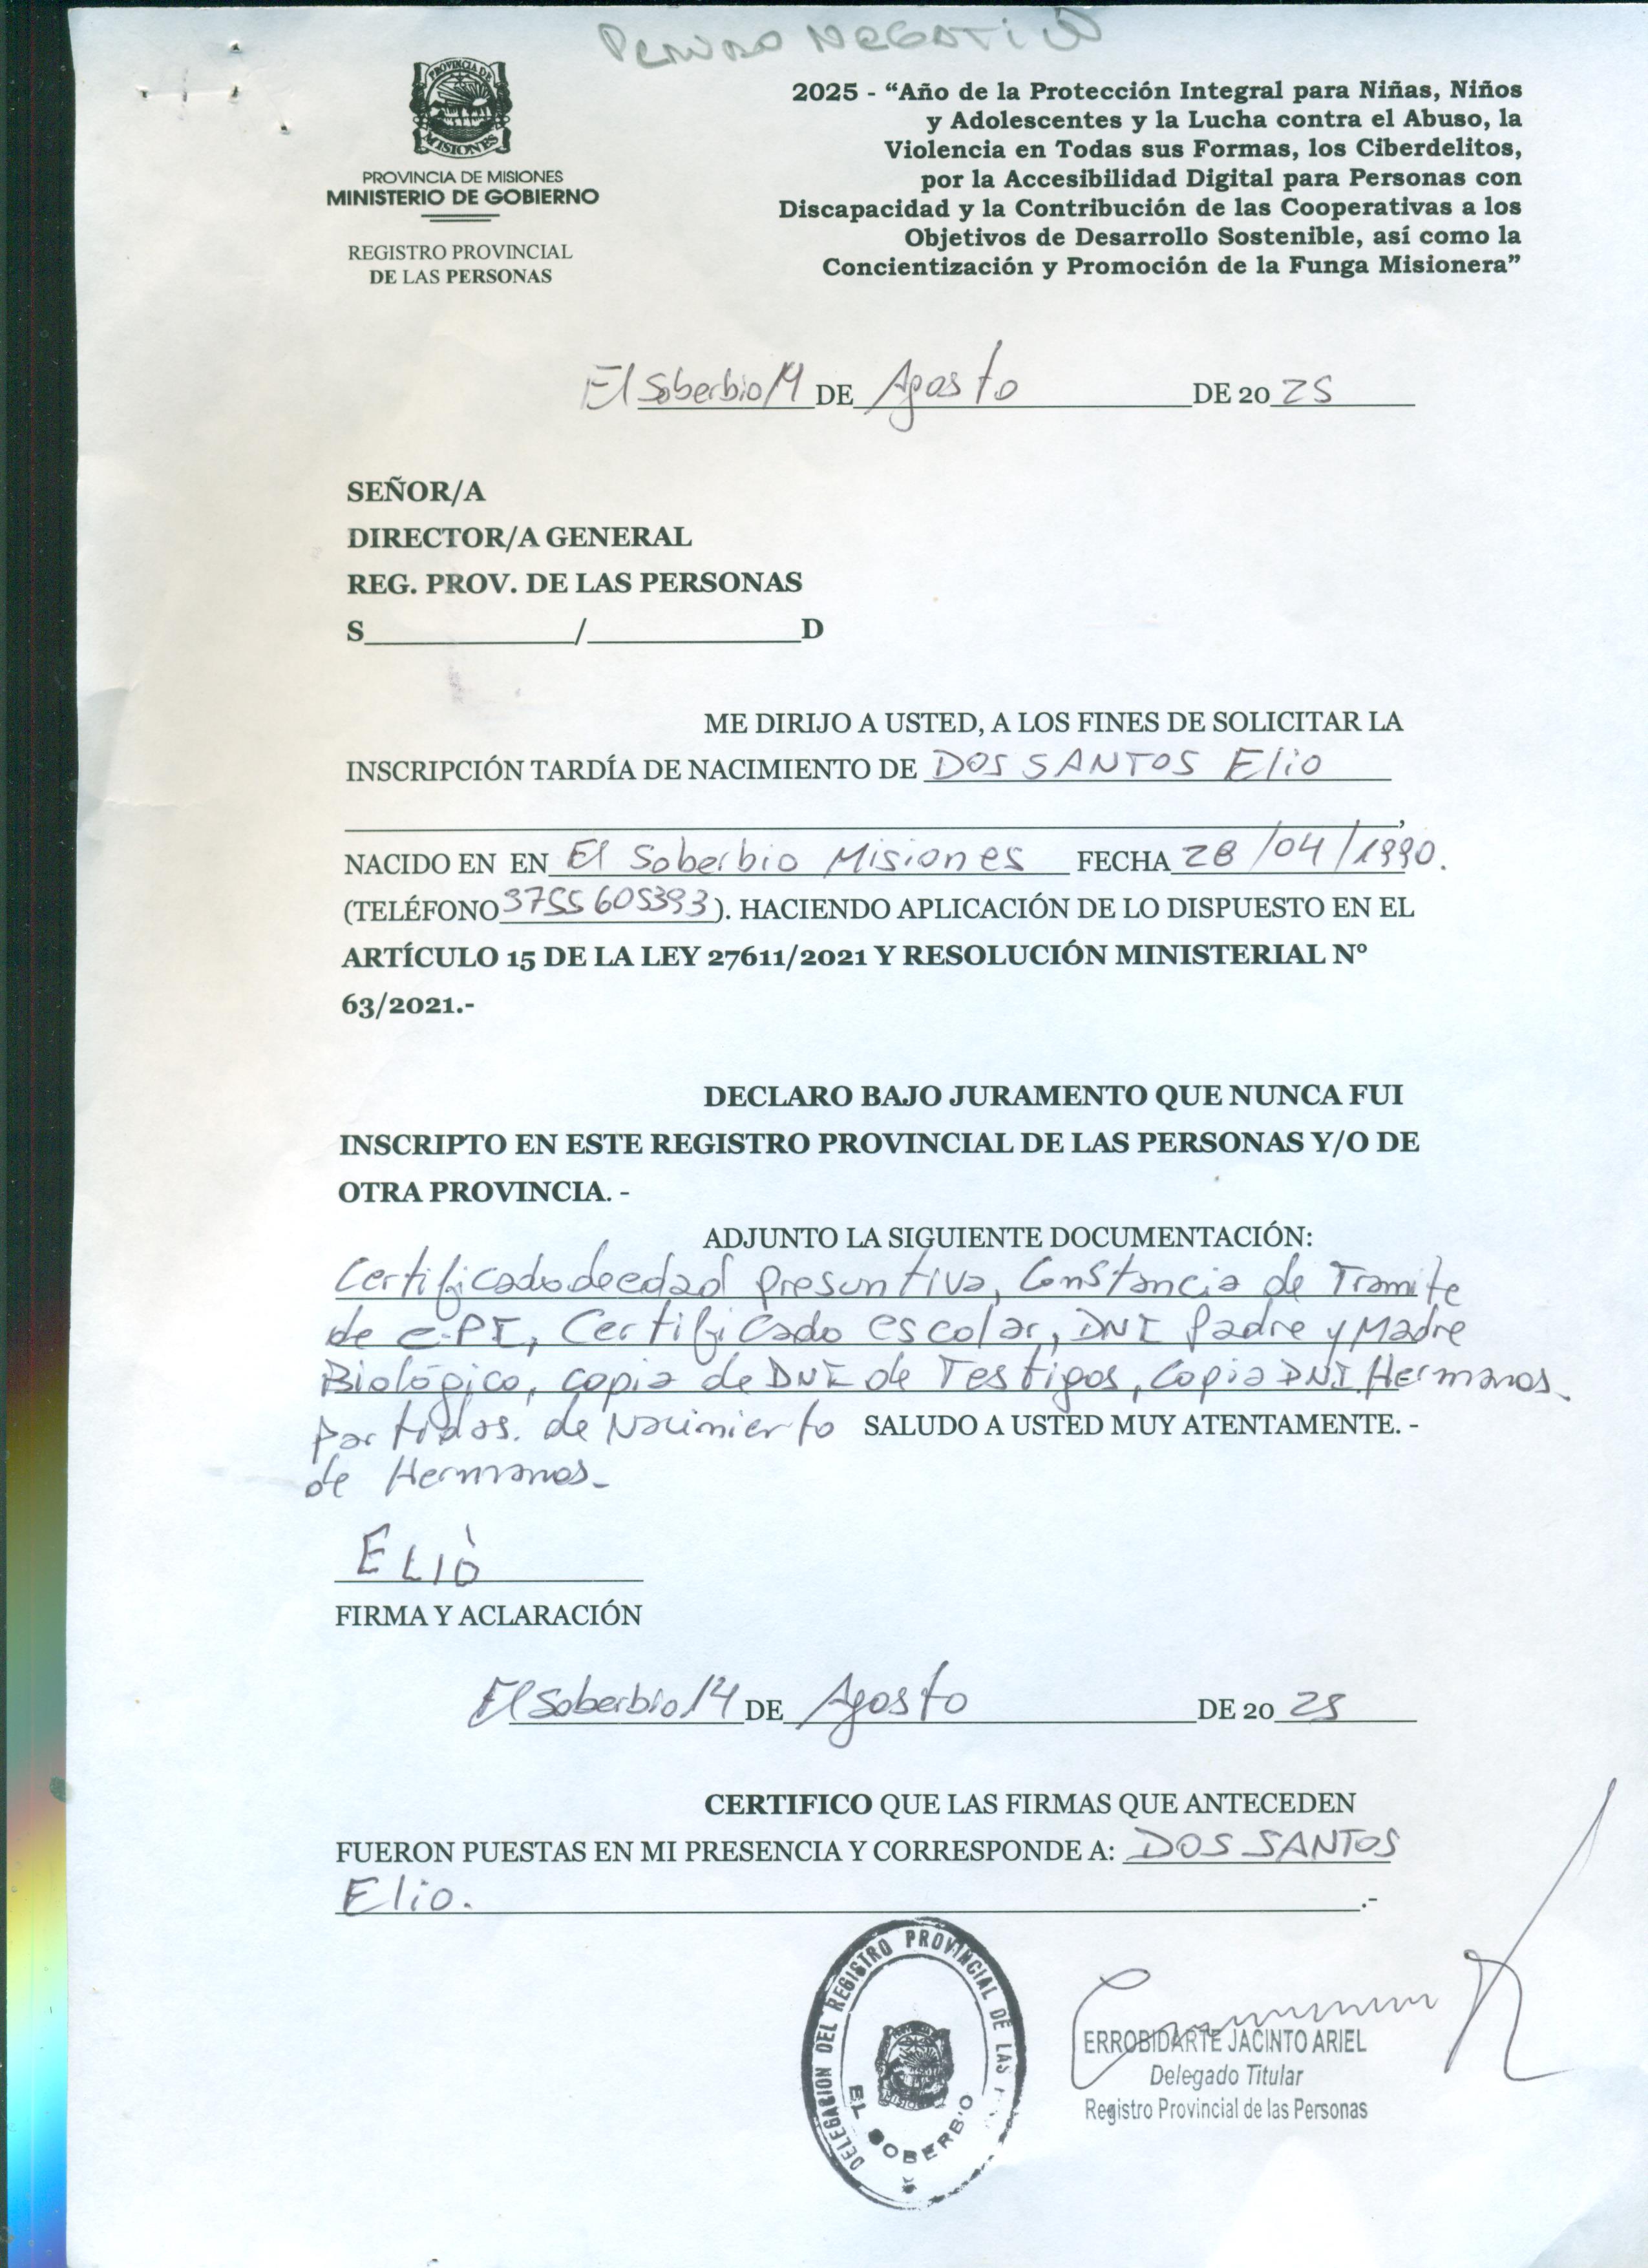 PROVINCIA DE
MISIONES
PROVINCIA DE MISIONES
MINISTERIO DE GOBIERNO
REGISTRO PROVINCIAL
DE LAS PERSONAS
2025 - “Año de la Protección Integral para Niñas, Niños
y Adolescentes y la Lucha contra el Abuso, la
Violencia en Todas sus Formas, los Ciberdelitos,
por la Accesibilidad Digital para Personas con
Discapacidad y la Contribución de las Cooperativas a los
Objetivos de Desarrollo Sostenible, así como la
Concientización y Promoción de la Funga Misionera”
El Soberbio 14 DE Agosto DE 20 25
SEÑOR/A
DIRECTOR/A GENERAL
REG. PROV. DE LAS PERSONAS
S____________/____________D
ME DIRIJO A USTED, A LOS FINES DE SOLICITAR LA
INSCRIPCIÓN TARDÍA DE NACIMIENTO DE DOS SANTOS Elio
,
NACIDO EN EN El Soberbio Misiones FECHA 28/04/1990.
(TELÉFONO 3755605393). HACIENDO APLICACIÓN DE LO DISPUESTO EN EL
ARTÍCULO 15 DE LA LEY 27611/2021 Y RESOLUCIÓN MINISTERIAL N°
63/2021.-
DECLARO BAJO JURAMENTO QUE NUNCA FUI
INSCRIPTO EN ESTE REGISTRO PROVINCIAL DE LAS PERSONAS Y/O DE
OTRA PROVINCIA. -
ADJUNTO LA SIGUIENTE DOCUMENTACIÓN:
Certificado de edad presuntiva, Constancia de Tramite
de C.P.I, Certificado escolar, DNI Padre y Madre
Biológico, copia de DNI de Testigos, Copia DNI Hermanos.
Partidas. de Nacimiento SALUDO A USTED MUY ATENTAMENTE. -
de Hermanos-
ELIO
FIRMA Y ACLARACIÓN
El Soberbio 14 DE Agosto DE 20 25
CERTIFICO QUE LAS FIRMAS QUE ANTECEDEN
FUERON PUESTAS EN MI PRESENCIA Y CORRESPONDE A: DOS SANTOS
Elio. .-
DELEGACION DEL REGISTRO PROVINCIAL DE LAS
EL SOBERBIO
ERROBIDARTE JACINTO ARIEL
Delegado Titular
Registro Provincial de las Personas